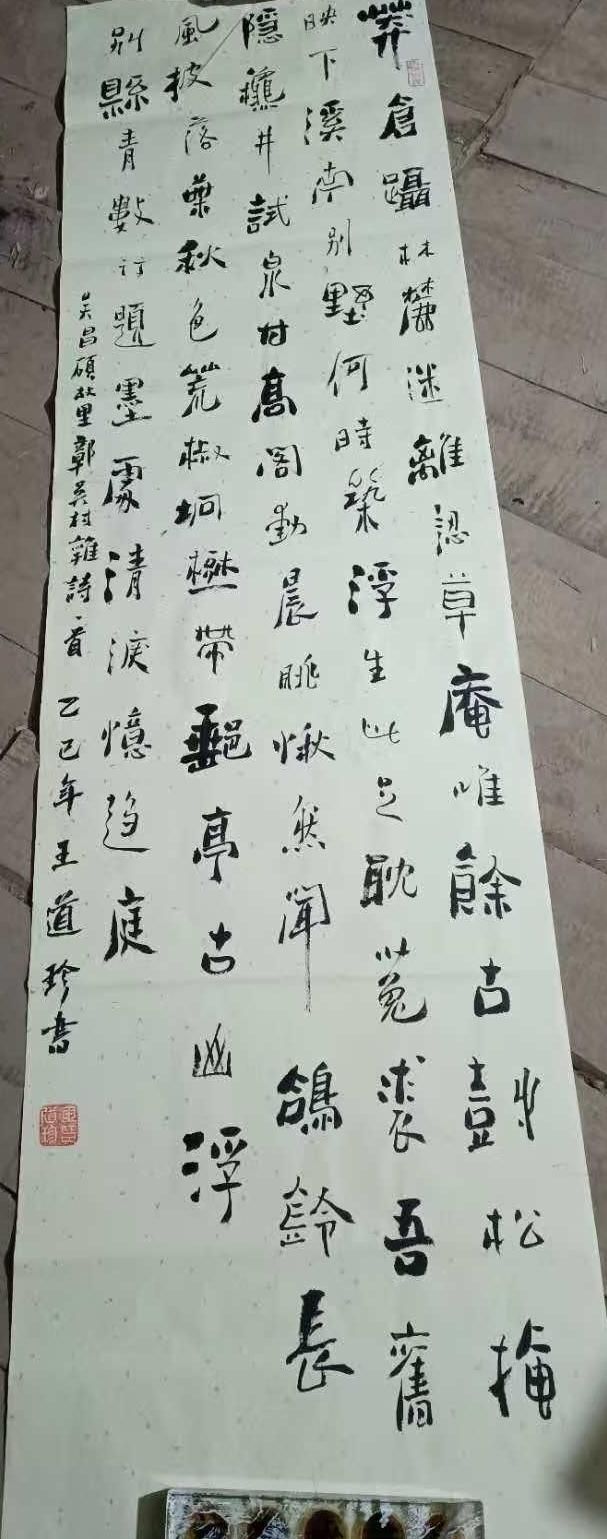 莽倉躡林麓迷離認草庵唯餘古壹松掩
映下溪南別墅何時築浮生此足耽菟裘吾舊
隱甕井試泉甘高閣勤晨眺愀然聞鴿鈴長
風披落葉秋色荒椒坰樾帶郵亭古幽浮
別縣青數行題墨處清淚憶趨庭
吳昌碩故里鄣吳村雜詩首 乙巳年王道珍書